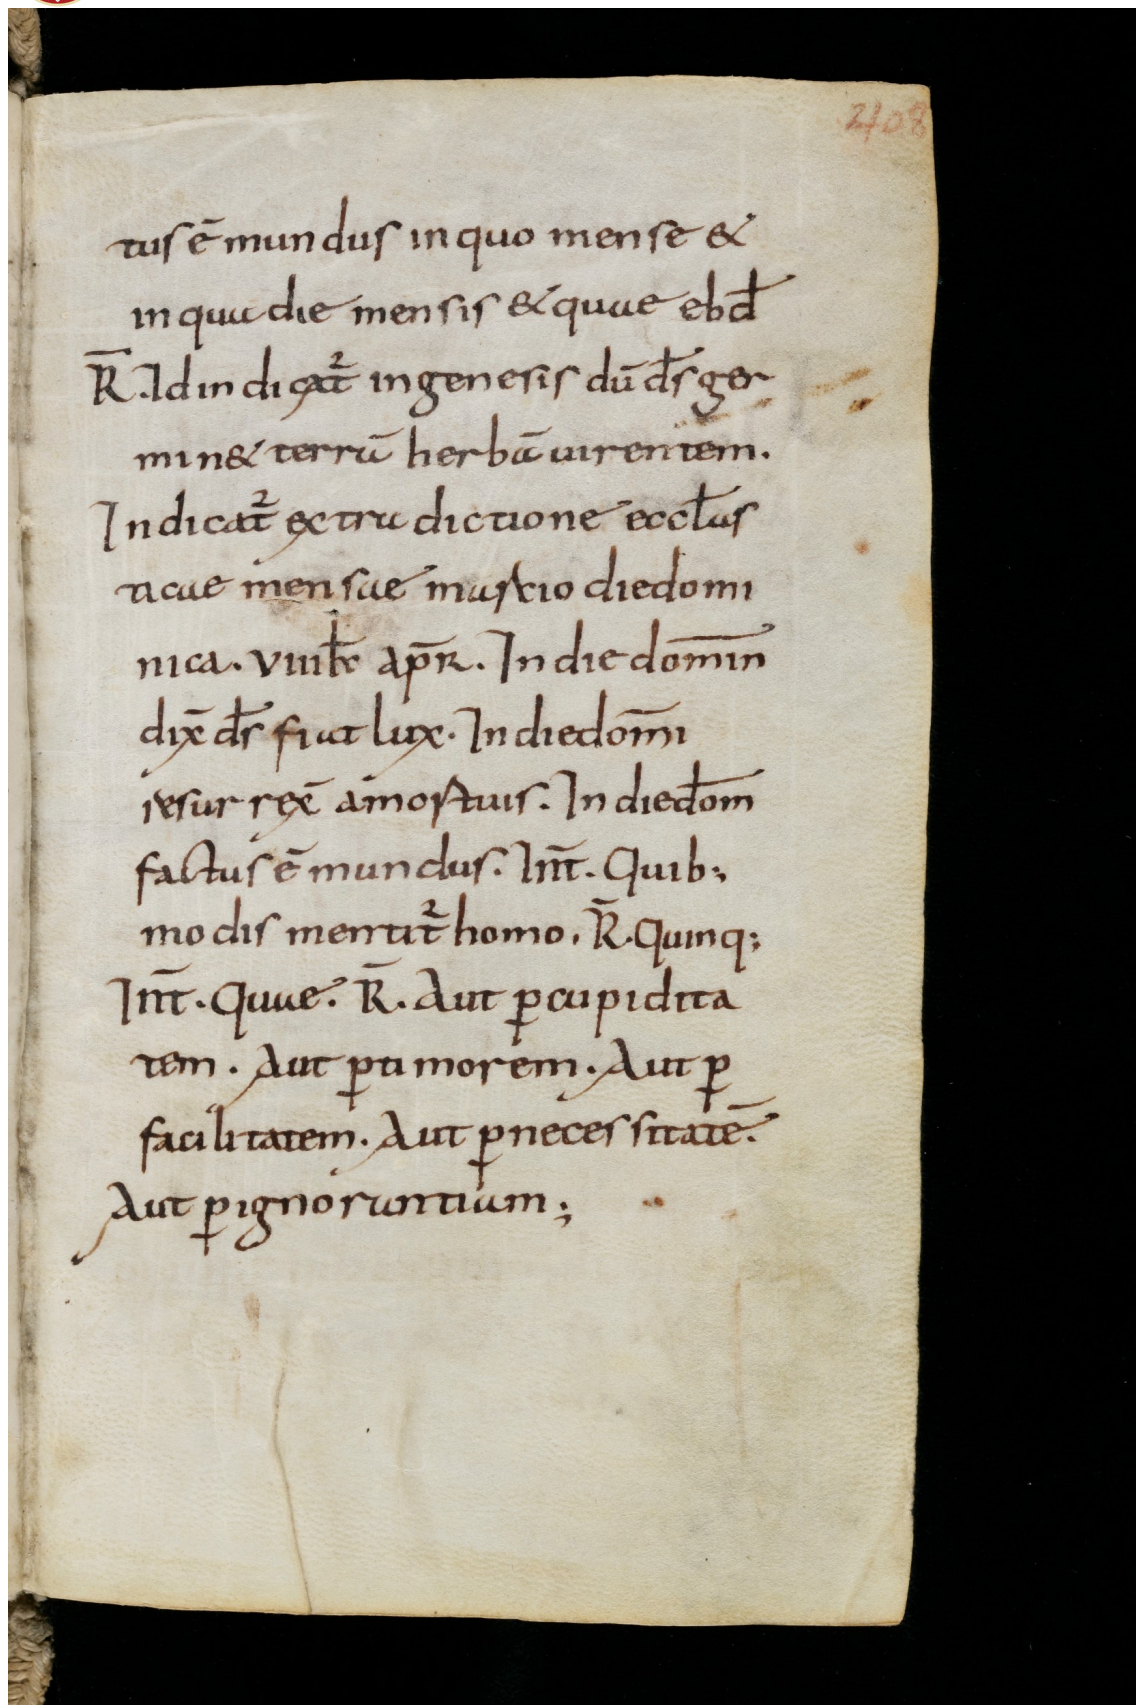 208
tus ē mundus in quo mense &
in qua die mensis & quae ebd̄
R̄. Id indicat̄² in genesis dū d̄s ger
min& terrā herbā uirentem.
Indicat̄² ex tradictione eccl̄as
ticae mensae martio die domi
nica. VIIII kł apr̄. In die domīn
dix̄ d̄s fiat lux. In die domī
resurrex̄ a mortuis. In die dom̄
factus ē mundus. Int̄. Quib;
modis mentit̄² homo. R̄. Quinq;
Int̄. Quae. R̄. Aut ꝑ cupidita
tem. Aut ꝑ timorem. Aut ꝑ
facilitatem. Aut ꝑ necessitatē.
Aut ꝑ ignorantiam;